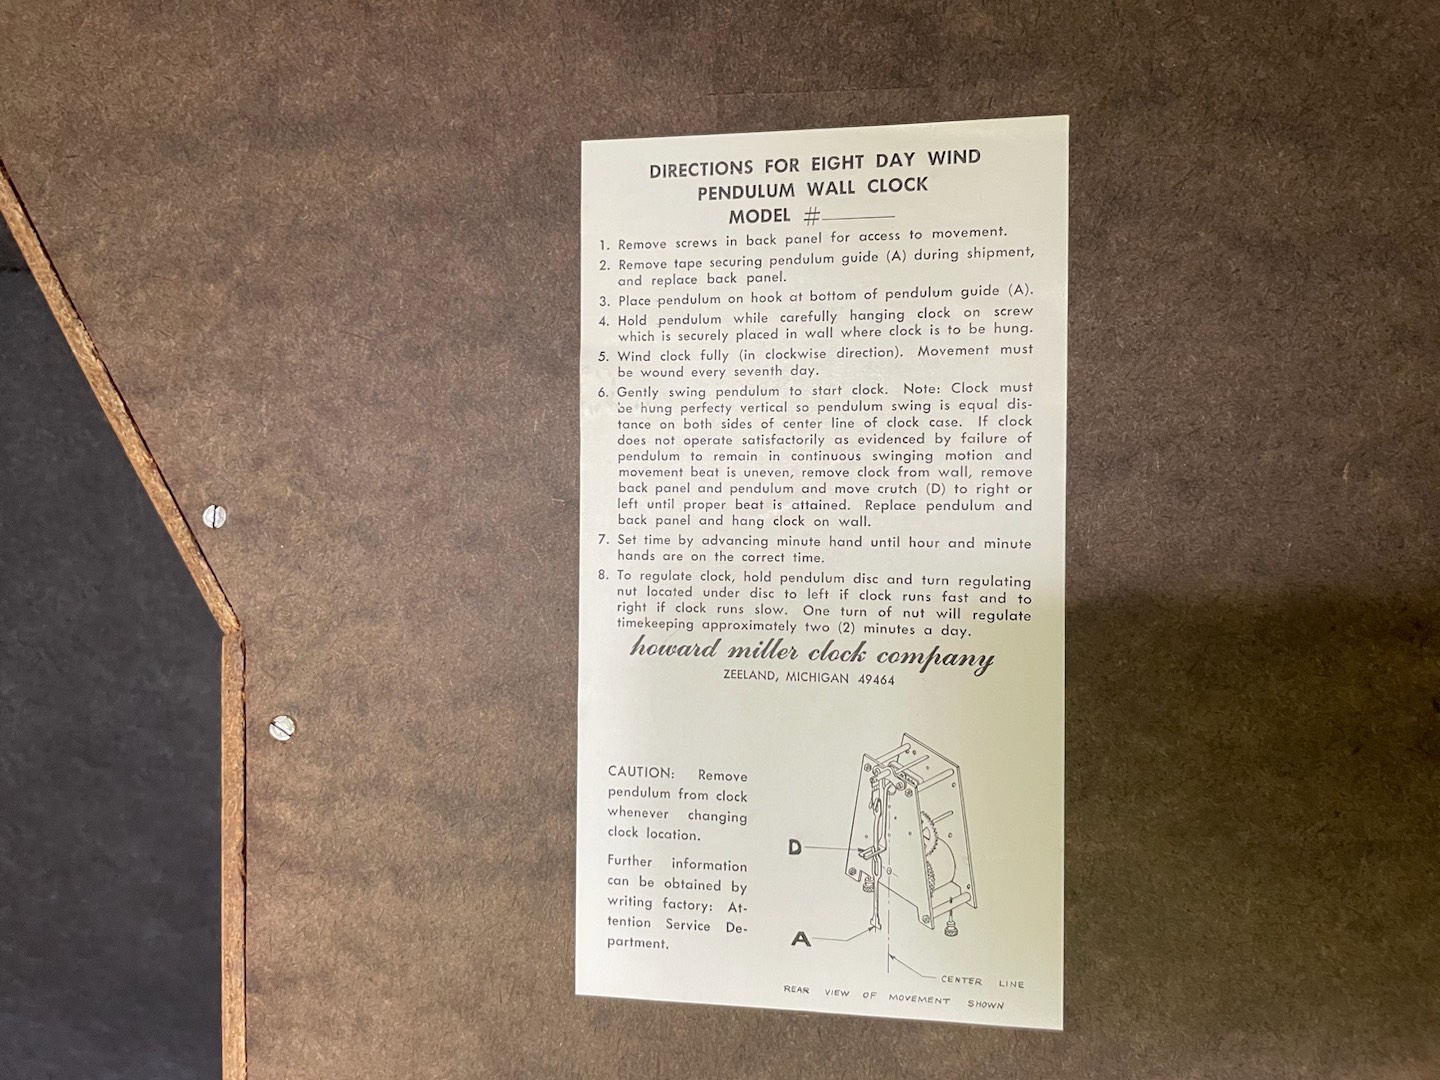 DIRECTIONS FOR EIGHT DAY WIND
PENDULUM WALL CLOCK
MODEL #______
1. Remove screws in back panel for access to movement.
2. Remove tape securing pendulum guide (A) during shipment,
and replace back panel.
3. Place pendulum on hook at bottom of pendulum guide (A).
4. Hold pendulum while carefully hanging clock on screw
which is securely placed in wall where clock is to be hung.
5. Wind clock fully (in clockwise direction). Movement must
be wound every seventh day.
6. Gently swing pendulum to start clock. Note: Clock must
be hung perfecty vertical so pendulum swing is equal dis-
tance on both sides of center line of clock case. If clock
does not operate satisfactorily as evidenced by failure of
pendulum to remain in continuous swinging motion and
movement beat is uneven, remove clock from wall, remove
back panel and pendulum and move crutch (D) to right or
left until proper beat is attained. Replace pendulum and
back panel and hang clock on wall.
7. Set time by advancing minute hand until hour and minute
hands are on the correct time.
8. To regulate clock, hold pendulum disc and turn regulating
nut located under disc to left if clock runs fast and to
right if clock runs slow. One turn of nut will regulate
timekeeping approximately two (2) minutes a day.
howard miller clock company
ZEELAND, MICHIGAN 49464
CAUTION: Remove
pendulum from clock
whenever changing
clock location.
Further information
can be obtained by
writing factory: At-
tention Service De-
partment.
D
A
CENTER LINE
REAR VIEW OF MOVEMENT SHOWN